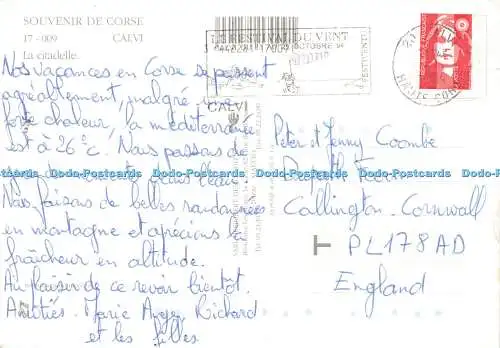 SOUVENIR DE CORSE
17 - 009 CALVI
La citadelle
LE FESTIVAL DU VENT
OCTOBRE 94
CALVI
Nos vacances en Corse se passent
agréablement, malgré une
forte chaleur, la méditerranée
est à 26°C! Nous passons de
Nous faisons de belles randonnées
en montagne et apprécions la
fraîcheur en altitude.
Au plaisir de ce revoir bientôt
Amitiés. Marie Ange, Richard
et les filles
Peter et Jenny Coombe
Callington - Cornwall
PL178AD
England
Dodo-Postcards Dodo-Postcards Dodo-Postcards Dodo-Postcards